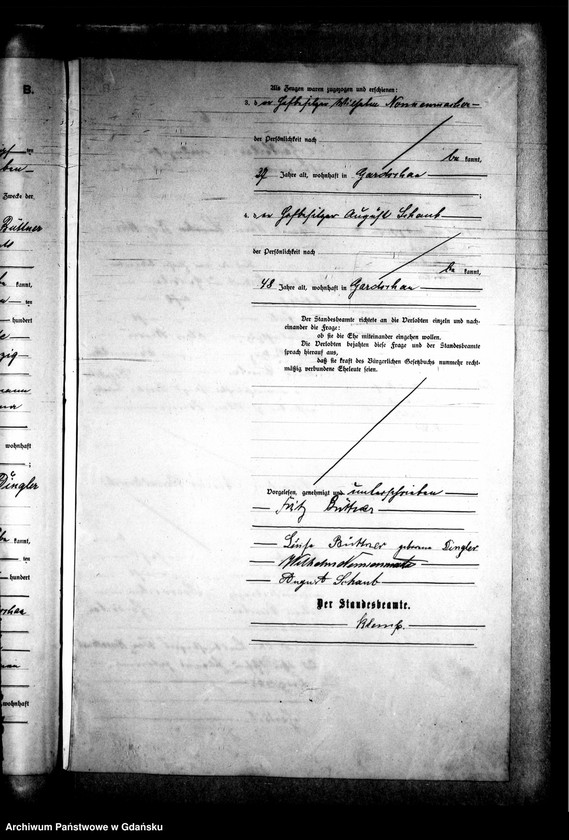 B.
Zwecke der
Büttner
kannt,
ten
hundert
wohnhaft
;
Dingler
kannt,
ten
hundert
wohnhaft
;
Als Zeugen waren zugezogen und erschienen:
3. der Hofbesitzer Wilhelm Nonnenmacher
der Persönlichkeit nach
be kannt,
Jahre alt, wohnhaft in Gardschau
;
4. der Hofbesitzer August Schaub
der Persönlichkeit nach
be kannt,
48 Jahre alt, wohnhaft in Gardschau
Der Standesbeamte richtete an die Verlobten einzeln und nach-
einander die Frage:
ob sie die Ehe miteinander eingehen wollen.
Die Verlobten bejahten diese Frage und der Standesbeamte
sprach hierauf aus,
daß sie kraft des Bürgerlichen Gesetzbuchs nunmehr recht-
mäßig verbundene Eheleute seien.
Vorgelesen, genehmigt und unterschrieben
Fritz Büttner
Luise Büttner geborene Dingler
Wilhelm Nonnenmacher
August Schaub
Der Standesbeamte.
Klemp.
Archiwum Państwowe w Gdańsku